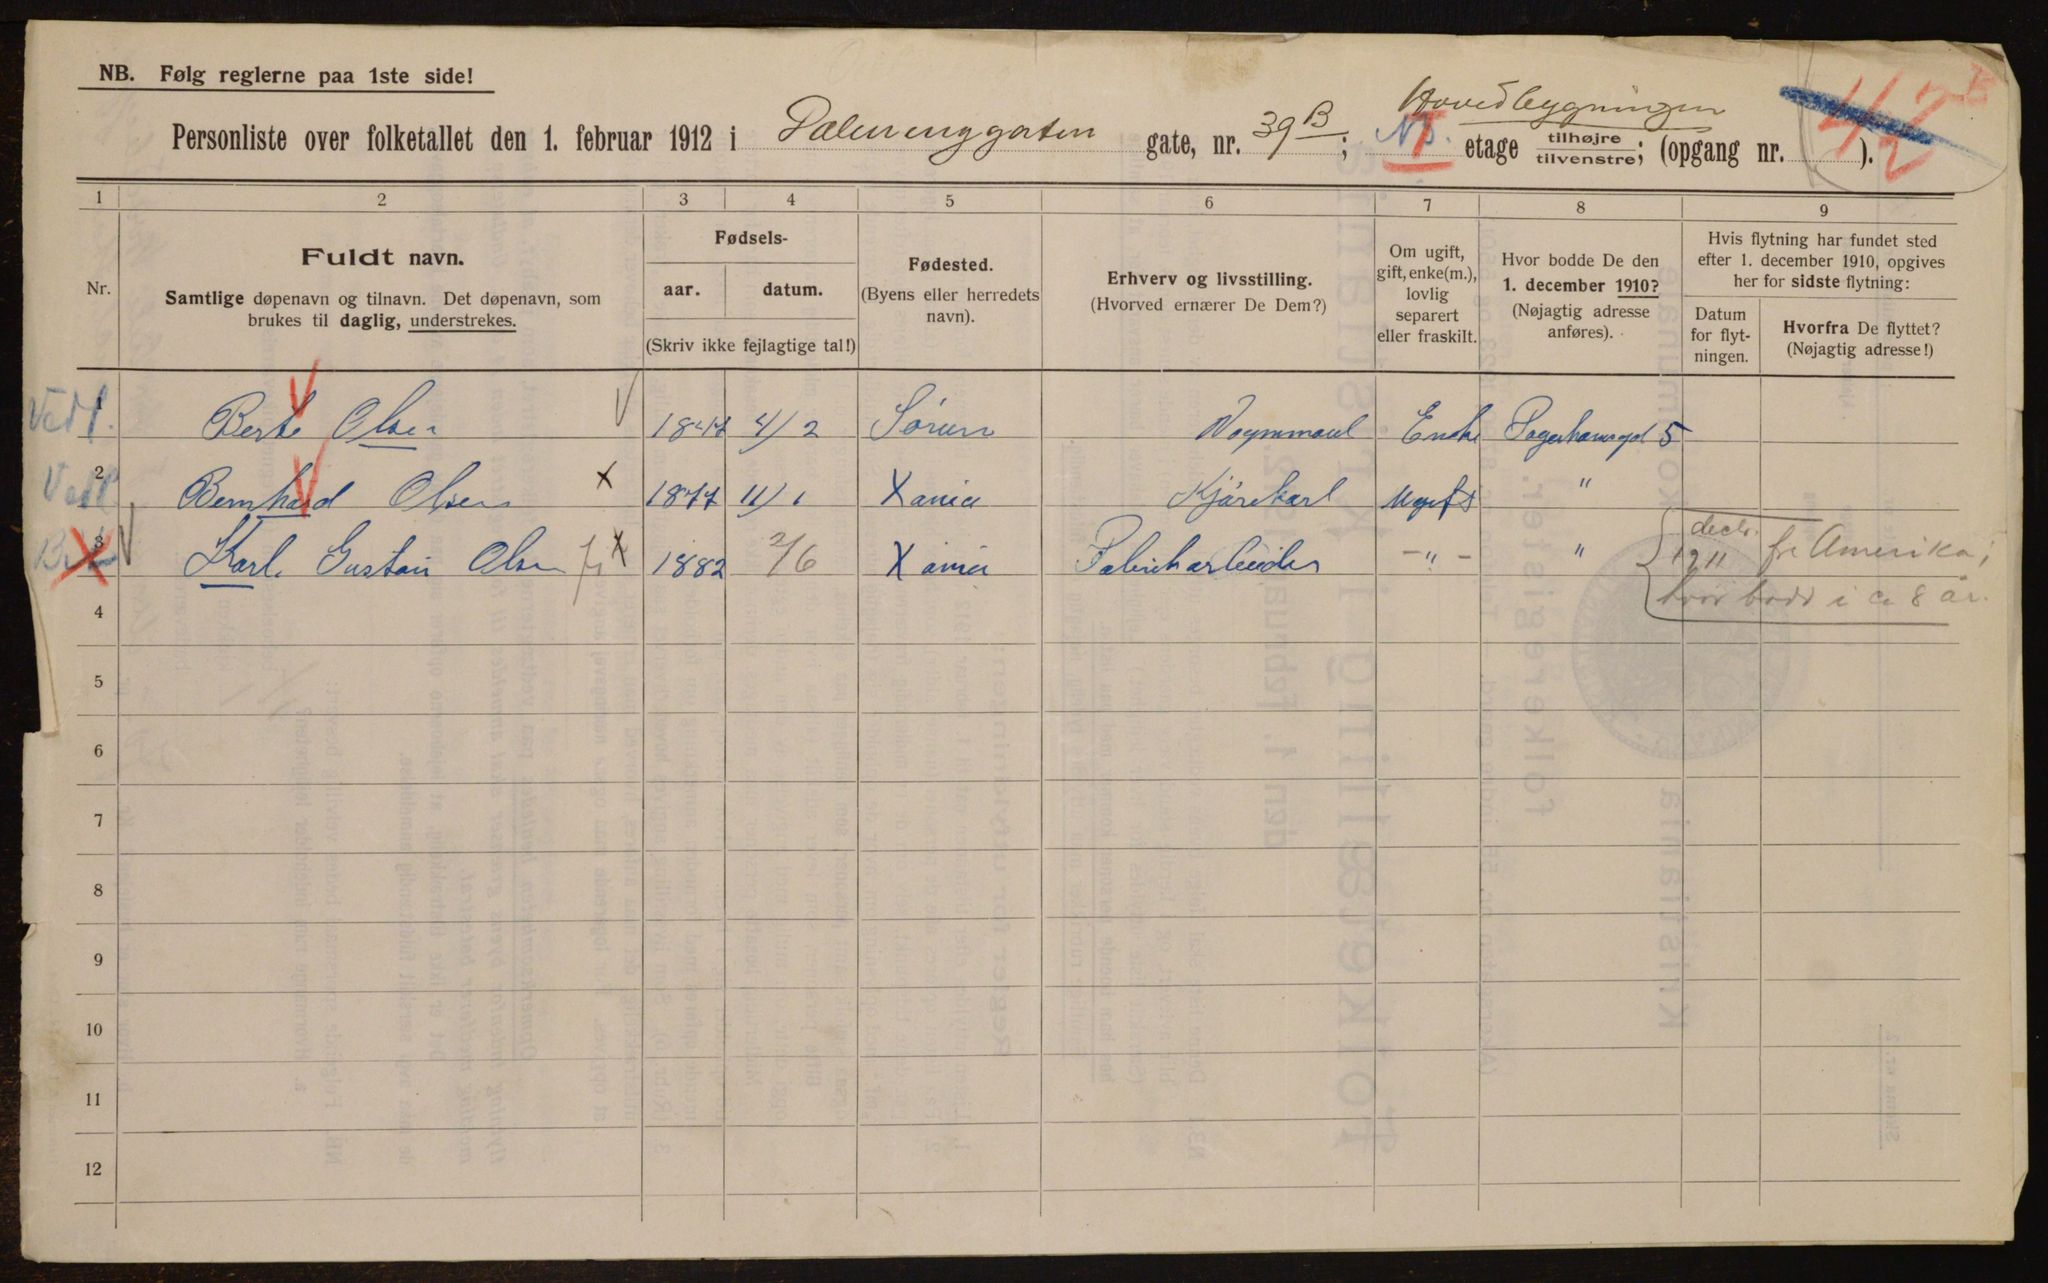 NB. Følg reglerne paa 1ste side!
Hovedbygningen
Personliste over folketallet den 1. februar 1912 i Dælenenggaten gate, nr. 39 B; I etage tilhøjre tilvenstre; (opgang nr. ). 42
1 2 3 4 5 6 7 8 9
Nr.
Fuldt navn.
Samtlige døpenavn og tilnavn. Det døpenavn, som
brukes til daglig, understrekes.
Fødsels-
aar. datum.
(Skriv ikke fejlagtige tal!)
Fødested.
(Byens eller herredets
navn).
Erhverv og livsstilling.
(Hvorved ernærer De Dem?)
Om ugift,
gift, enke(m.),
lovlig
separert
eller fraskilt.
Hvor bodde De den
1. december 1910?
(Nøjagtig adresse
anføres).
Hvis flytning har fundet sted
efter 1. december 1910, opgives
her for sidste flytning:
Datum
for flyt-
ningen.
Hvorfra De flyttet?
(Nøjagtig adresse!)
Vedl. 1 Berte Olsen 1847 4/2 Sørum Enke 5
Vedl 2 Bernhard Olsen x 1877 11/1 Xania Kjørekarl Ugift "
3 Karl Gustav Olsen x 1882 2/6 Xania Fabrikarbeider - " - " decbr. 1911 fr Amerika;
hvor bodd i ca 8 år.
4
5
6
7
8
9
10
11
12